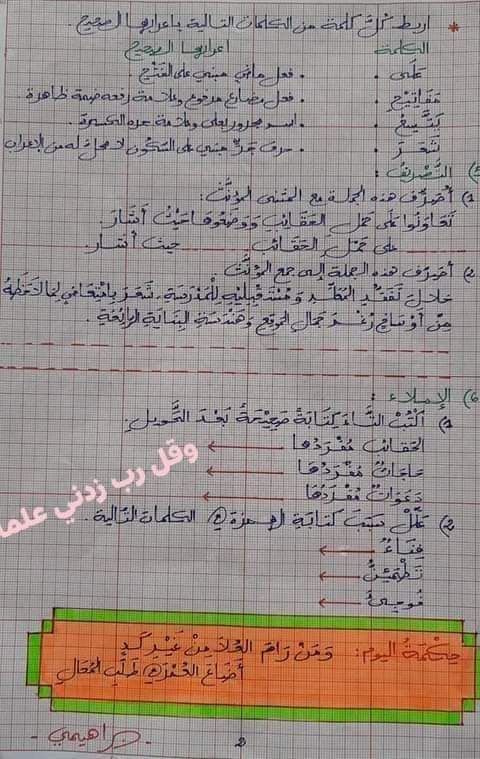 * أربط كلّ كلمة من الكلمات التالية بإعرابها الصحيح.
الكلمة إعرابها الصحيح
عَلَى . . فعل ماضي مبني على الفتح.
مَفَاتِيحِ . . فعل مضارع مرفوع وعلامة رفعه ضمة ظاهرة.
يَتَّسِعُ . . اسم مجرور بعلى وعلامة جره الكسرة.
شَعَرَ . . حرف جرّ مبني على السّكون لا محلّ له من الإعراب
5) التَّصْرِيفُ:
1) أُصَرِّفُ هذه الجملة مع المثنى المؤنّث:
تَعَاوَنُوا عَلَى حَمْلِ الحَقَائِبِ وَوَضَعُوهَا حَيْثُ أَشَارَ.
على حَمْلِ الحَقَائب حيث أشار.
2) أصرّف هذه الجملة إلى جمع المؤنّث
خلال تَفَقُّدِ المُقَلِّد وَمُسْتَقْبِلِيهِ لِلْمَدْرَسَةِ، شَعَرَ بِامْتِعَاضٍ لِمَا لَاحَظَهُ
مِنْ أَوْسَاخٍ رَغْمَ جَمَالِ المَوْقِعِ وَهَنْدَسَةِ البِنَايَةِ الرَّائِعَةِ.
6) الإملاء:
1) أَكْتُبُ التَّاءَ كِتَابَةً صَحِيحَةً بَعْدَ التَّحْوِيلِ.
الحَقَائِبُ مُفْرَدُهَا
حَاجَاتٌ مُفْرَدُهَا
دَعَوَاتٌ مُفْرَدُهَا
وقل رب زدني علما
2) عَلِّلْ سَبَبَ كِتَابَةِ الهمزة في الكلمات التالية.
فِنَاءٌ
تَطْمَئِنُّ
فُوجِئَ
حِكْمَةُ اليوم: وَمَنْ رَامَ العُلَا مِنْ غَيْرِ كَدٍّ
أَضَاعَ العُمْرَ فِي طَلَبِ المُحَالِ
- براهيمي -
2